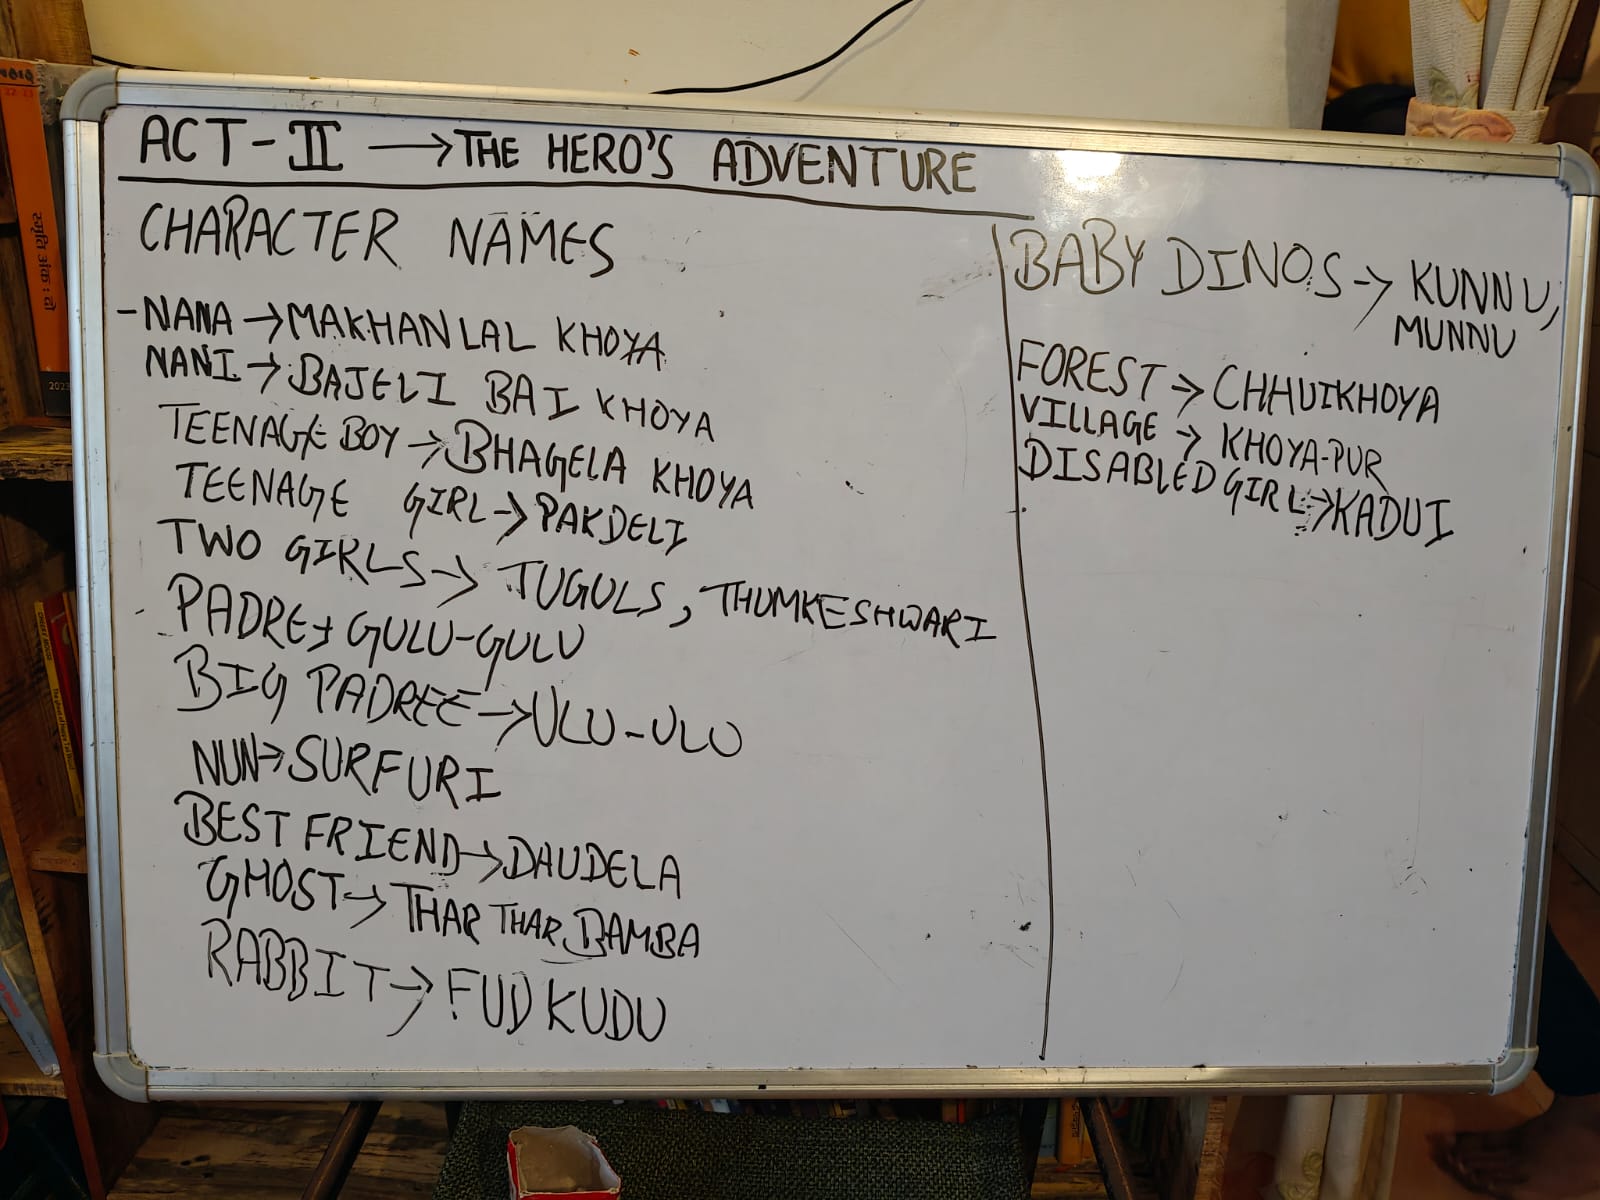 ACT-II → THE HERO'S ADVENTURE
CHARACTER NAMES
-NANA → MAKHANLAL KHOYA
NANI → BAJELI BAI KHOYA
TEENAGE BOY → BHAGELA KHOYA
TEENAGE GIRL → PAKDELI
TWO GIRLS → JUGULS, THUMKESHWARI
PADRE → GULU-GULU
BIG PADREE → ULU-ULU
NUN → SURFURI
BEST FRIEND → DAUDELA
GHOST → THAR THAR BAMBA
RABBIT → FUDKUDU
BABY DINOS → KUNNU,
MUNNU
FOREST → CHHUIKHOYA
VILLAGE → KHOYA-PUR
DISABLED GIRL → KADUI
स्मृति अंक : दो
2023